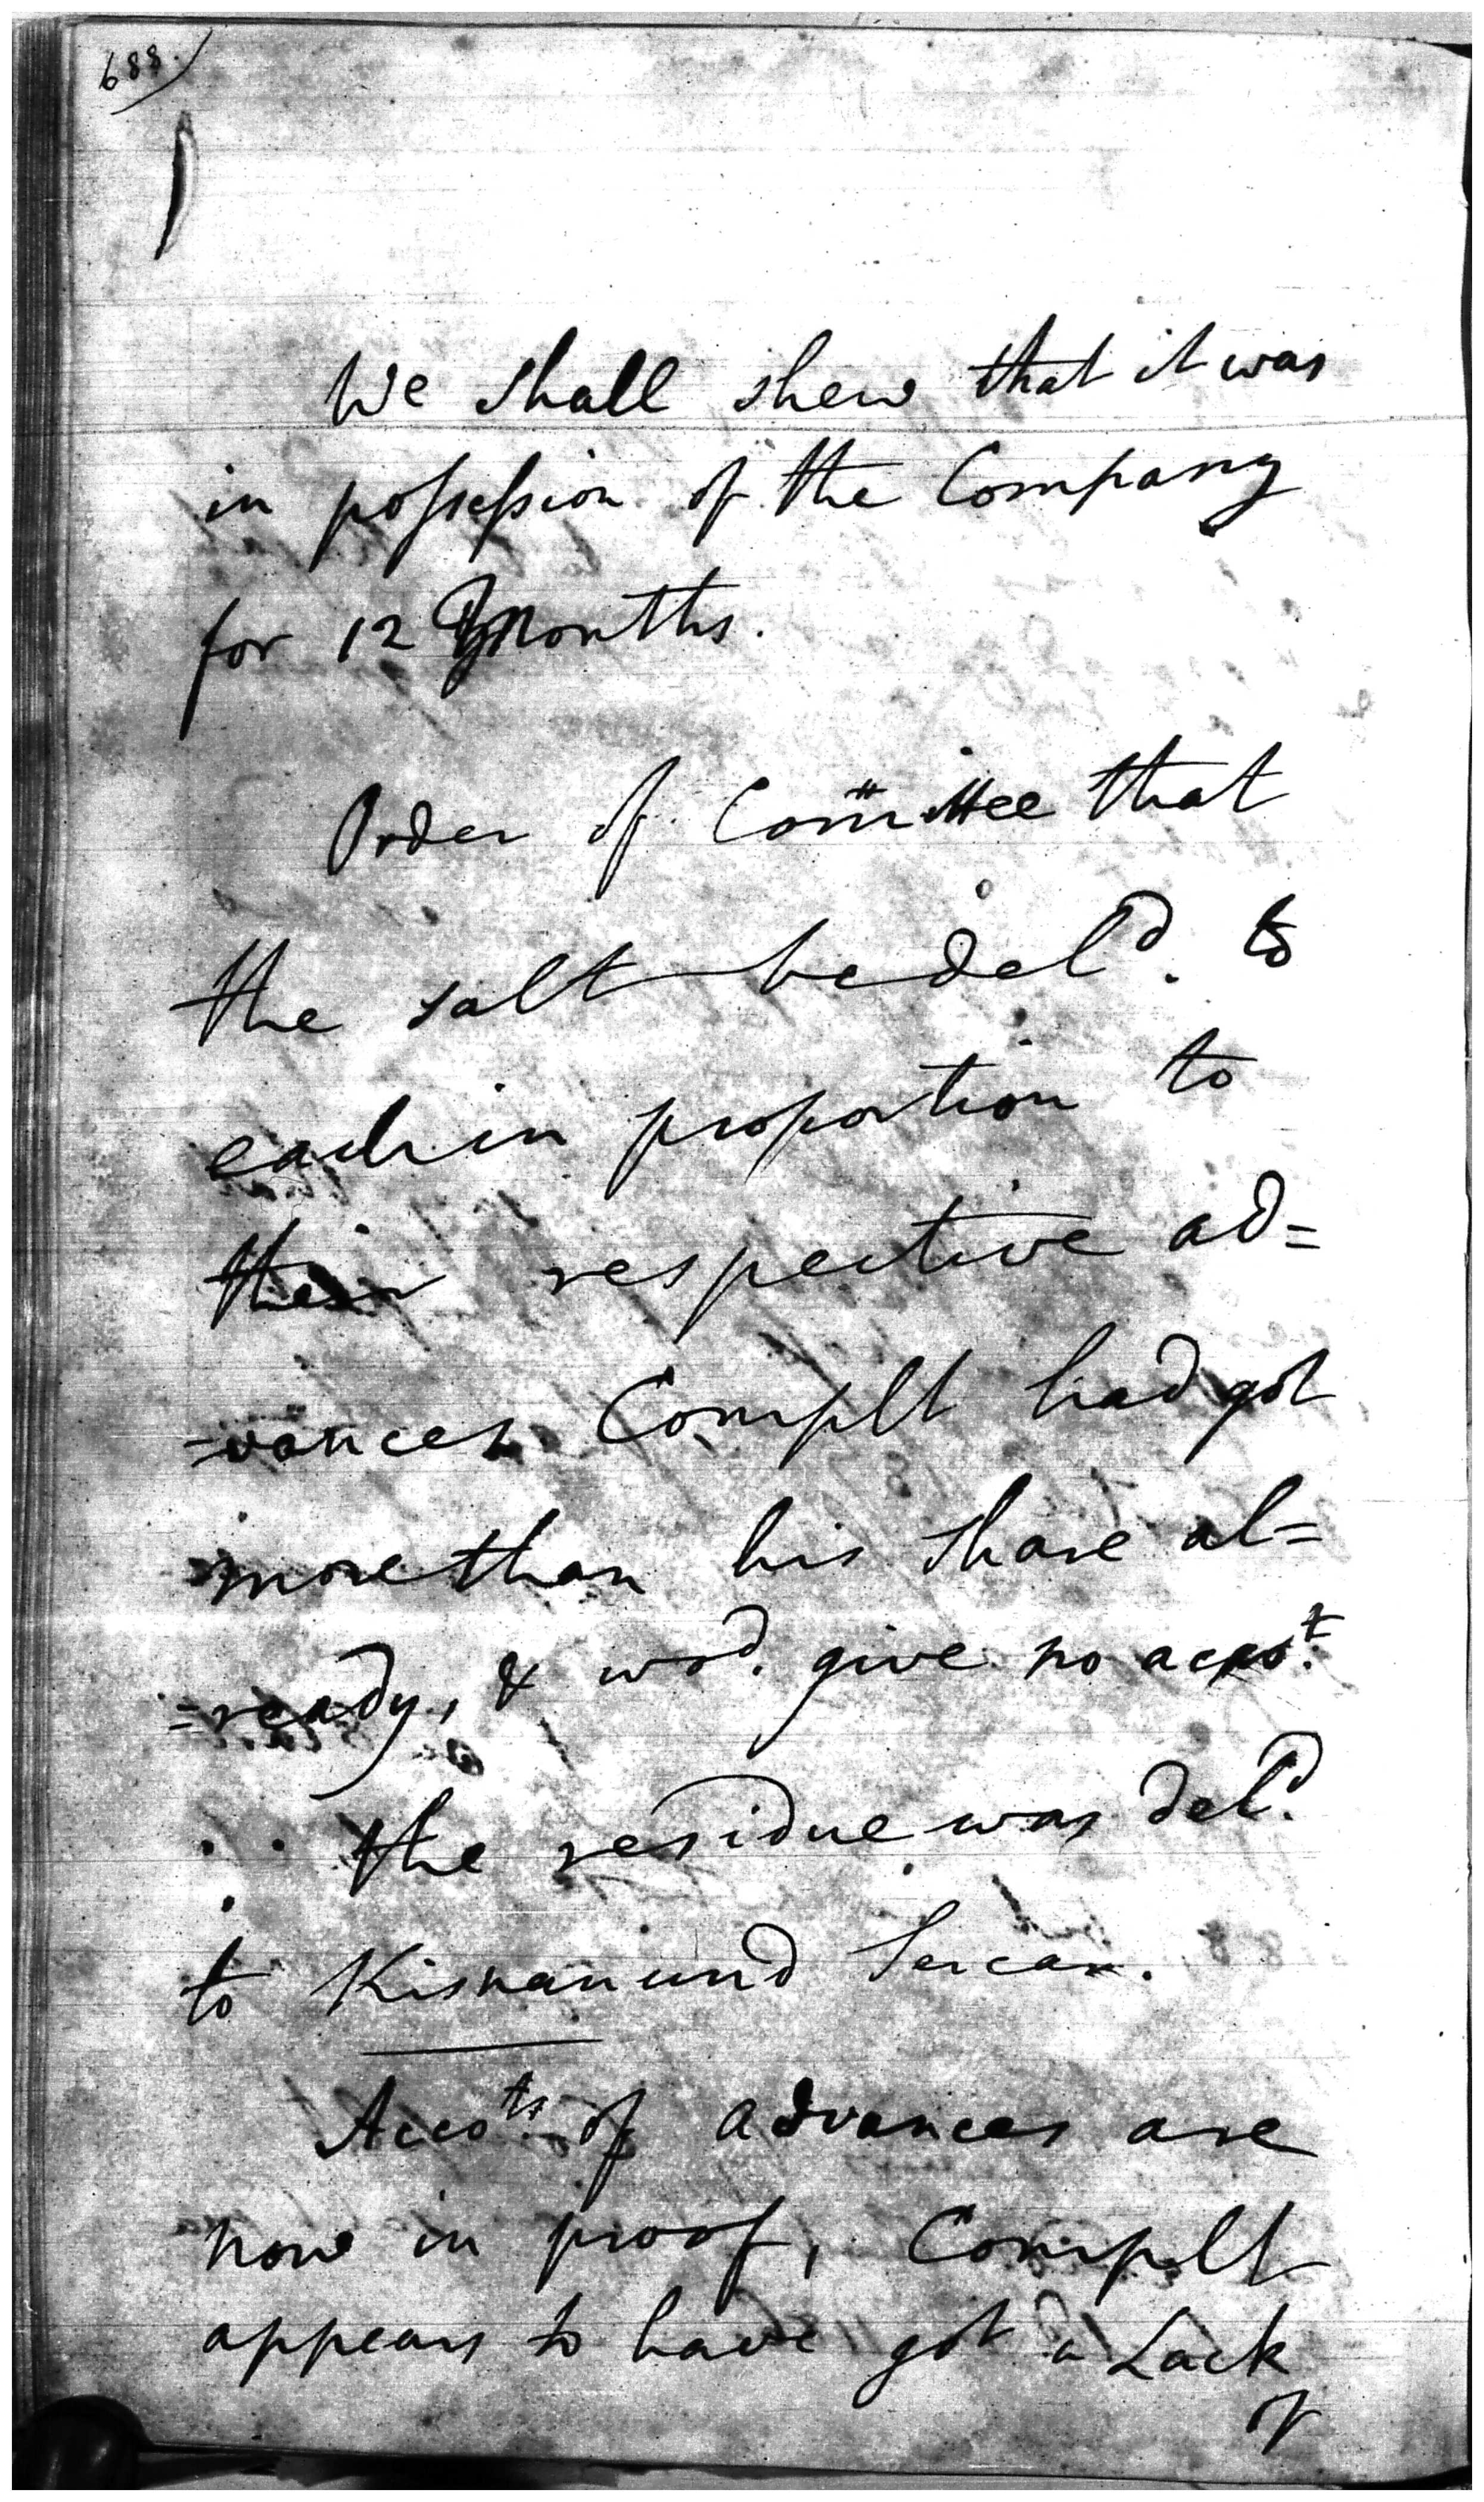 688.
We shall shew that it was
in possession of the Company
for 12 Months.
Order of Com̄ittee that
the salt be del^d. to
each in proportion to
their respective ad=
=vances Complt had got
more than his share al=
=ready, & wo^d. give no acco^t.
∴ the residue was del^d.
to Kisnanund Sercar.
Acco^ts. of advances are
now in proof, Complt
appears to have got a Lack
of